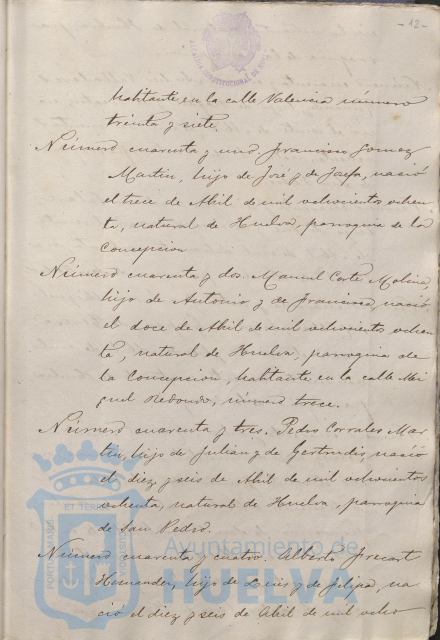 -12-
habitante en la calle Valencia número
treinta y siete.
Número cuarenta y uno Francisco Gomez
Martin, hijo de José y de Josefa, nació
el trece de Abril de mil ochocientos ochen-
ta, natural de Huelva, parroquia de la
Concepcion
Número cuarenta y dos. Manuel Corte Molina,
hijo de Antonio y de Francisca, nació
el doce de Abril de mil ochocientos ochen
ta, natural de Huelva parroquia de
la Concepcion, habitante en la calle Mi
guel Redondo, número trece.
Número cuarenta y tres. Pedro Corrales Mar
tin, hijo de Julian y de Gertrudis, nació
el diez y seis de Abril de mil ochocientos
ochenta, natural de Huelva, parroquia
de San Pedro.
Número cuarenta y cuatro. Alberto
Hernandez, hijo de Luis y de Felipa, na
ció el diez y seis de Abril de mil ocho
Ayuntamiento de
HUELVA